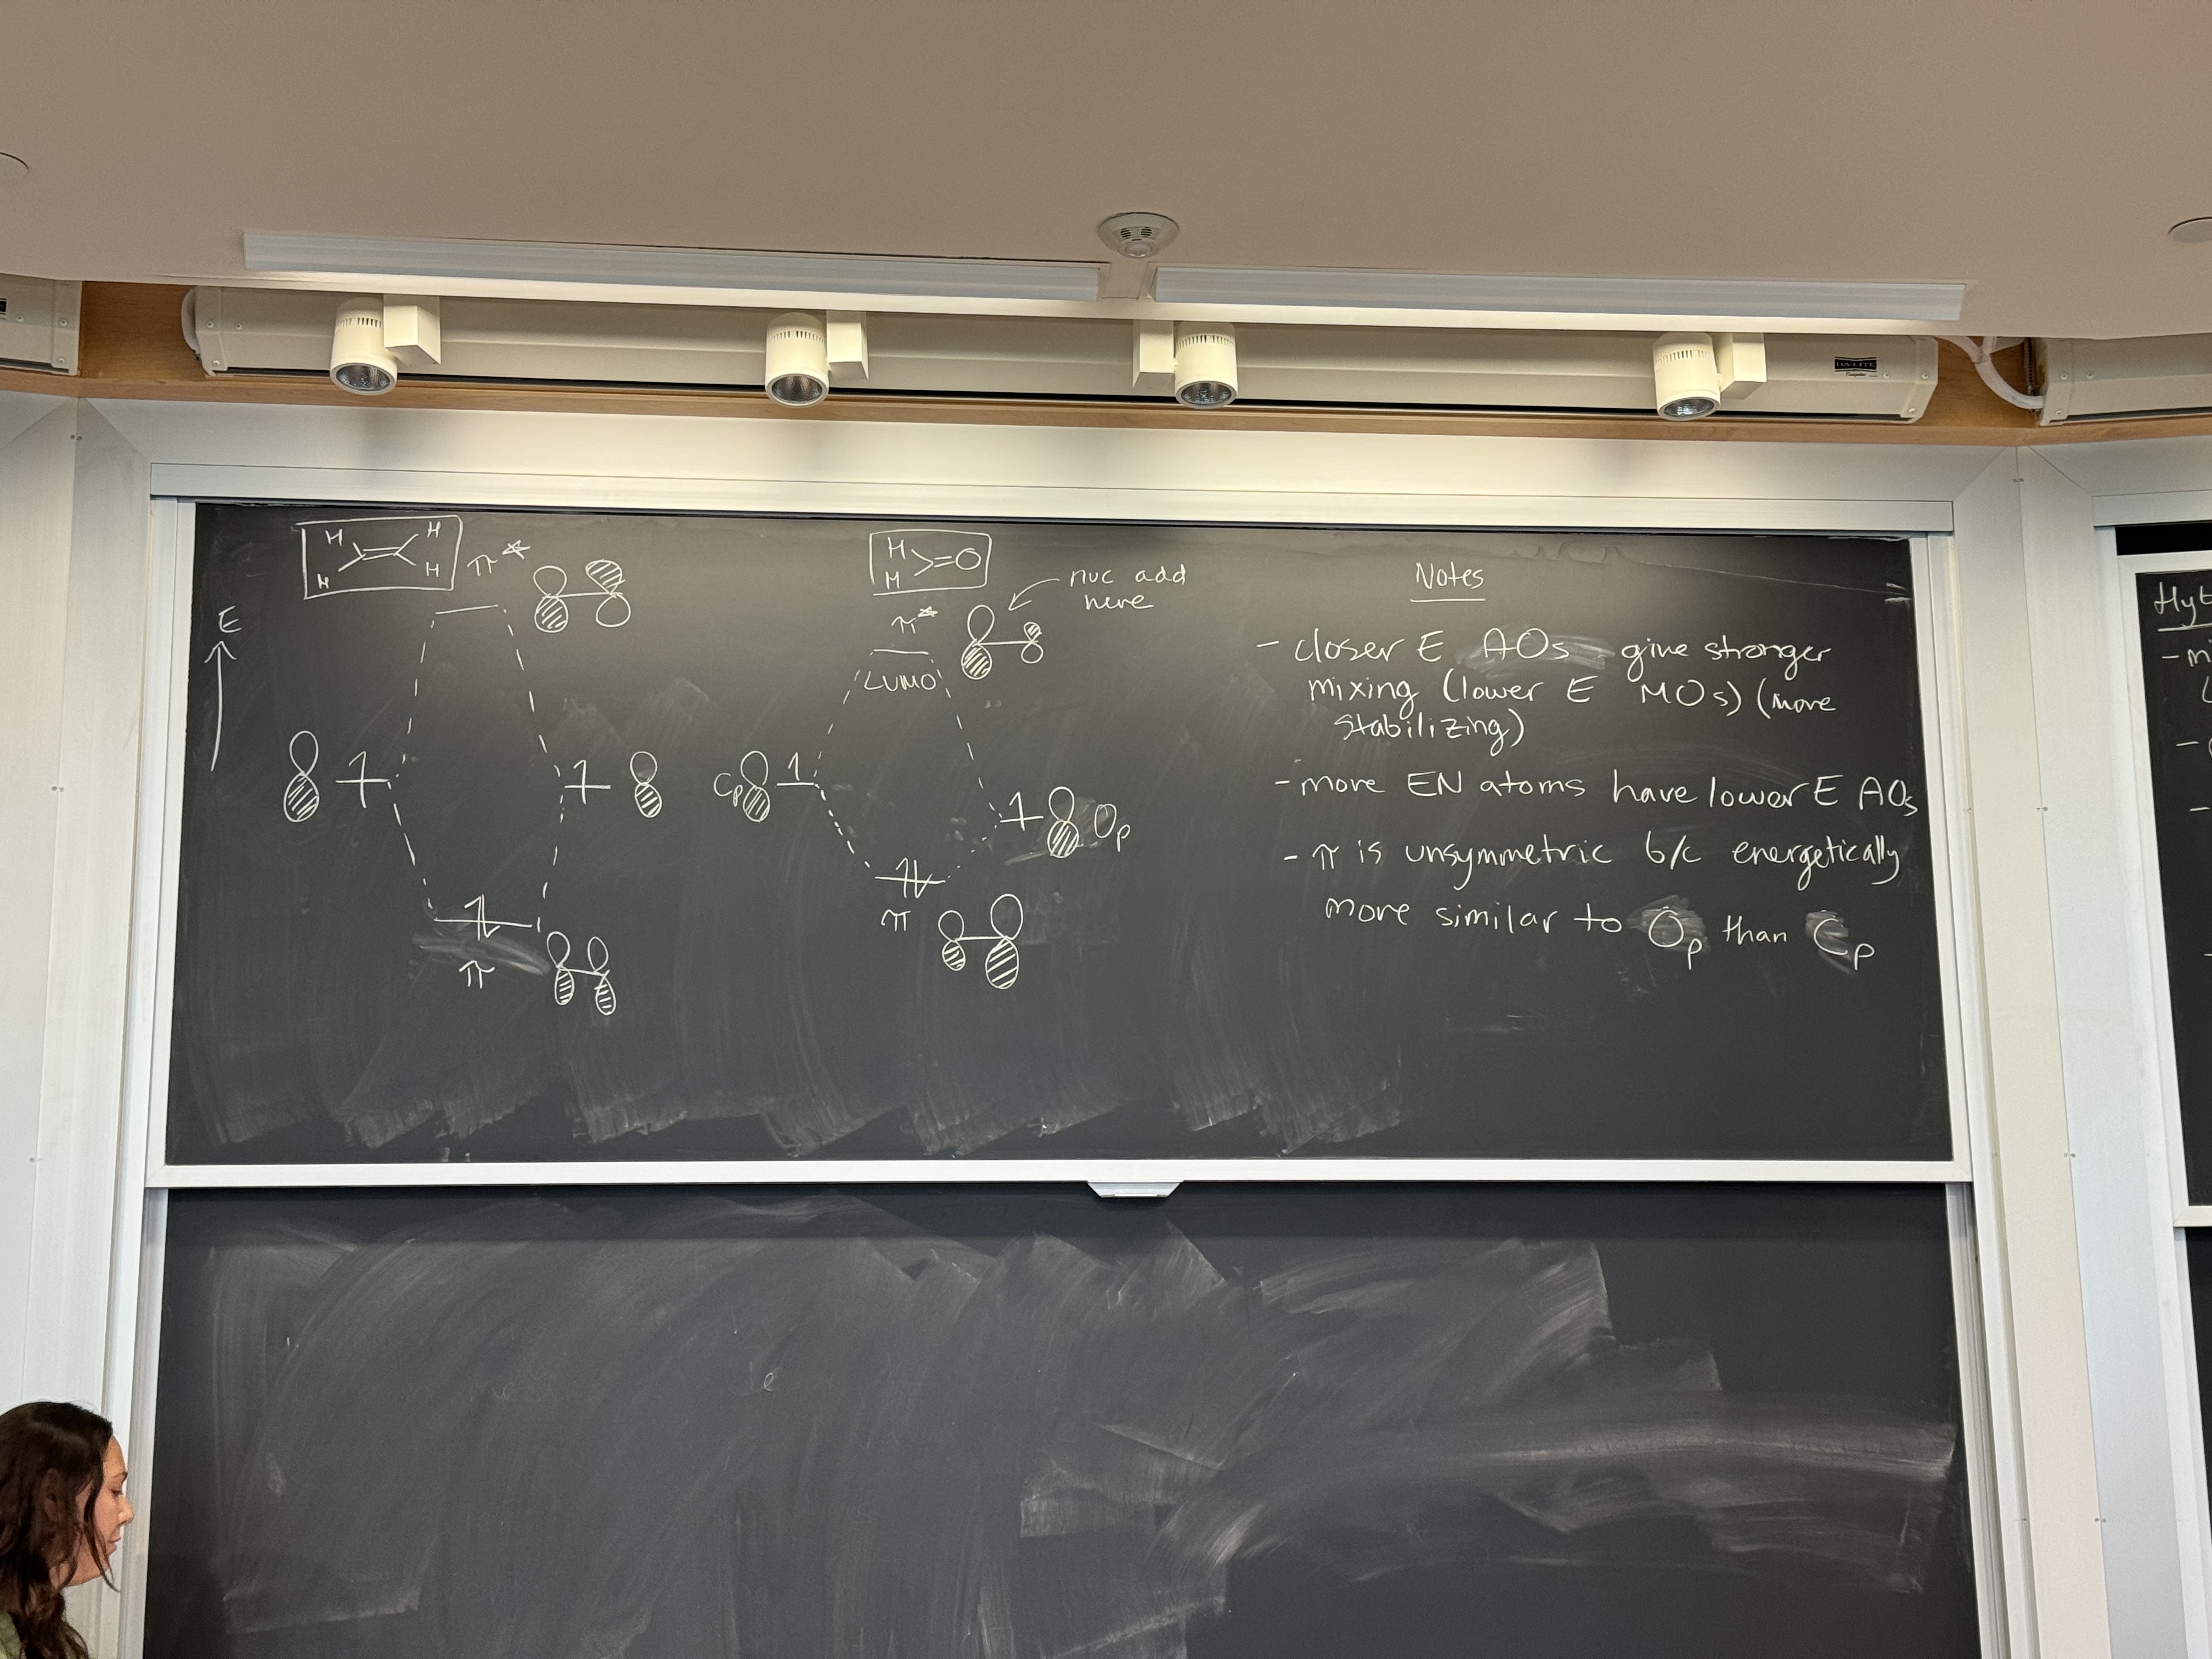 H H
H H
π*
E
π
H
H >=O
nuc add
here
π*
LUMO
Cp
Op
π
Notes
- closer E AOs give stronger
mixing (lower E MOs) (more
stabilizing)
- more EN atoms have lower E AOs
- π is unsymmetric b/c energetically
more similar to Op than Cp
DA-LITE